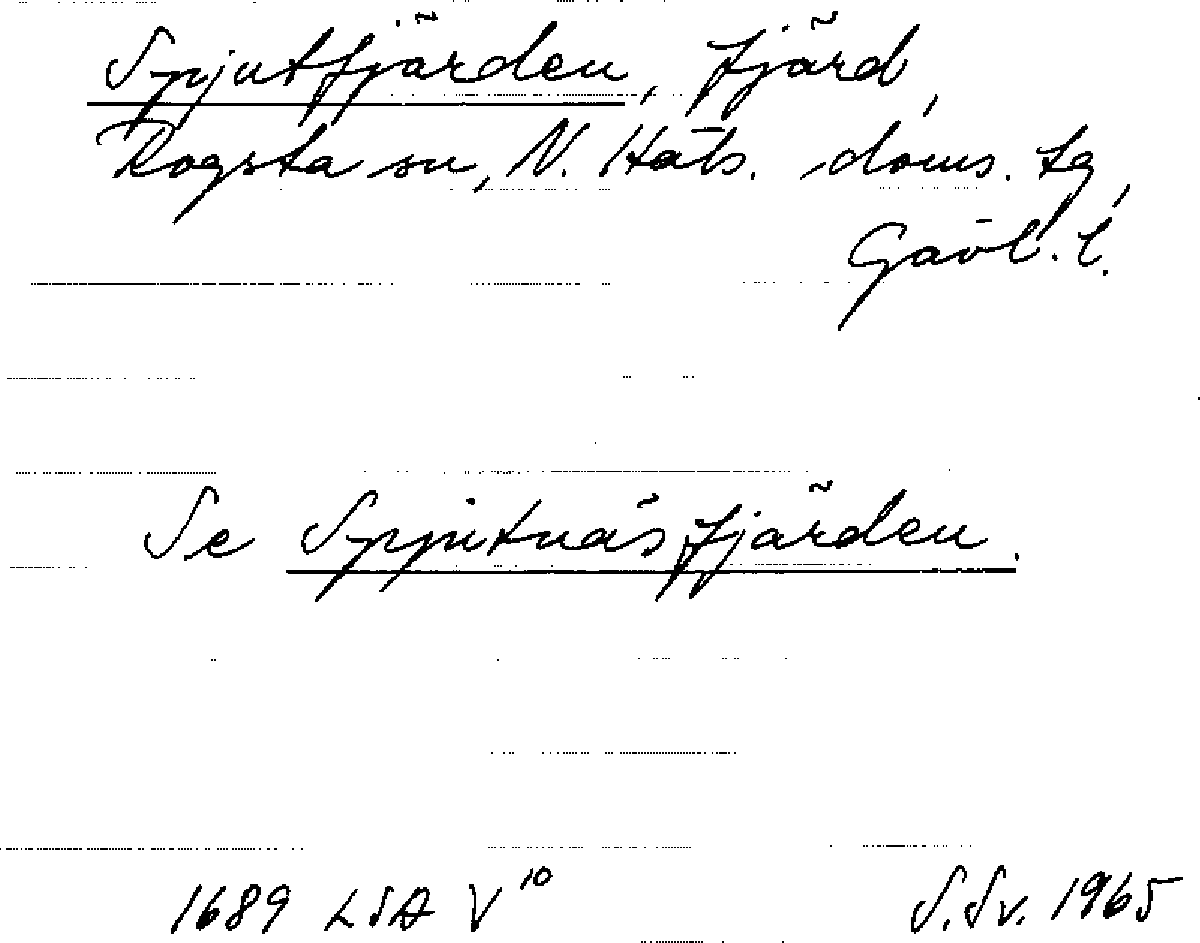 Spjutfjärden, fjärd,
Rogsta sn, N. Häls. doms. tg,
Gävl. l.
Se Spjutnäsfjärden.
1689 LSA V¹⁰ S.Sv. 1965